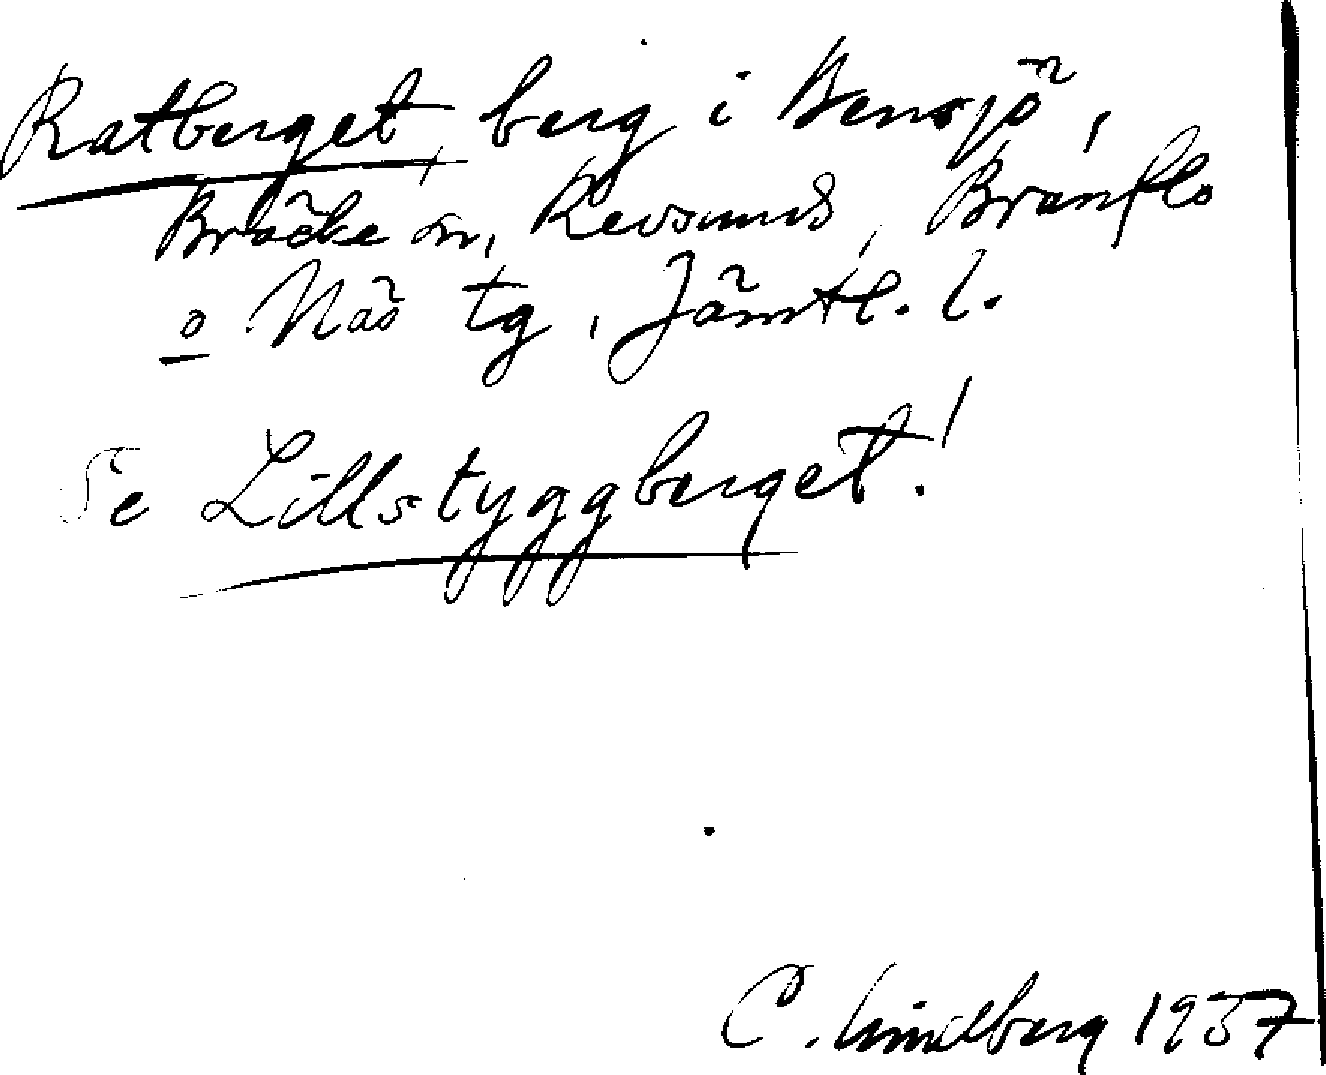 Ratberget, berg i Bensjö,
Bräcke sn, Revsund, Brunflo
o Näs tg, Jämtl. l.
Se Lillstyggberget!
C. Lindberg 1937